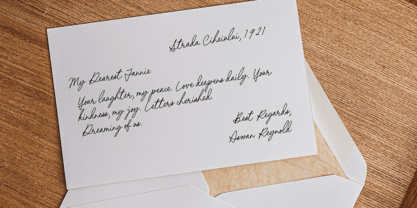 Strada Ciheiului, 1921
My Dearest Fannie
Your laughter, my peace. Love deepens daily. Your
kindness, my joy. Letters cherished.
Dreaming of us.
Best Regards,
Aswan Reynold